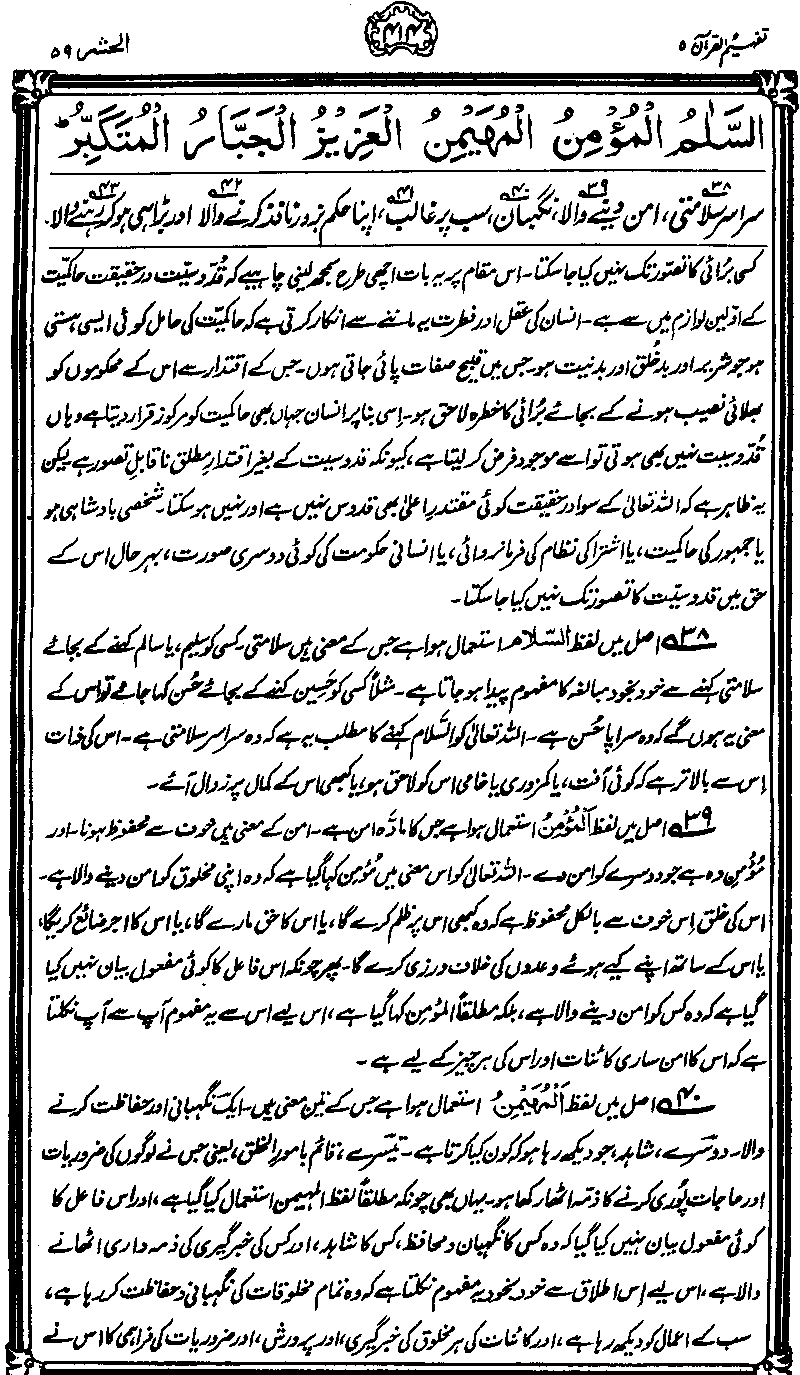 تفہیم القرآن ۵
۴۱۴
الحشر ۵۹
السَّلٰمُ الْمُؤْمِنُ الْمُهَيْمِنُ الْعَزِيْزُ الْجَبَّارُ الْمُتَكَبِّرُ ؕ
سراسر سلامتی،۳۸ امن دینے والا،۳۹ نگہبان،۴۰ سب پر غالب،۴۱ اپنا حکم بزور نافذ کرنے والا۴۲ اور بڑا ہی ہو کر رہنے والا۔۴۳
کسی برائی کا تصور تک نہیں کیا جا سکتا۔ اس مقام پر یہ بات اچھی طرح سمجھ لینی چاہیے کہ قُدّوسیّت درحقیقت حاکمیت
کے اوّلین لوازم میں سے ہے۔ انسان کی عقل اور فطرت یہ ماننے سے انکار کرتی ہے کہ حاکمیّت کی حامل کوئی ایسی ہستی
ہو جو شریر اور بدخُلق اور بدنیت ہو۔ جس میں قبیح صفات پائی جاتی ہوں۔ جس کے اقتدار سے اس کے محکوموں کو
بھلائی نصیب ہونے کے بجائے بُرائی کا خطرہ لاحق ہو۔ اسی بنا پر انسان جہاں بھی حاکمیت کو مرکوز قرار دیتا ہے وہاں
قُدّوسیت نہیں بھی ہوتی تو اسے موجود فرض کر لیتا ہے، کیونکہ قدوسیت کے بغیر اقتدارِ مطلق ناقابلِ تصور ہے لیکن
یہ ظاہر ہے کہ اللہ تعالیٰ کے سوا درحقیقت کوئی مقتدرِ اعلیٰ بھی قدوس نہیں ہے اور نہیں ہو سکتا۔ شخصی بادشاہی ہو
یا جمہور کی حاکمیت، یا اشتراکی نظام کی فرمانروائی، یا انسانی حکومت کی کوئی دوسری صورت، بہرحال اس کے
حق میں قدوسیّت کا تصور تک نہیں کیا جا سکتا۔
۳۸ اصل میں لفظ السّلام استعمال ہوا ہے جس کے معنی ہیں سلامتی۔ کسی کو سلیم، یا سالم کہنے کے بجائے
سلامتی کہنے سے خود بخود مبالغہ کا مفہوم پیدا ہو جاتا ہے۔ مثلاً کسی کو حَسِین کہنے کے بجائے حُسن کہا جائے تو اس کے
معنی یہ ہوں گے کہ وہ سراپا حُسن ہے۔ اللہ تعالیٰ کو السّلام کہنے کا مطلب یہ ہے کہ وہ سراسر سلامتی ہے۔ اس کی ذات
اِس سے بالاتر ہے کہ کوئی آفت، یا کمزوری یا خامی اس کو لاحق ہو، یا کبھی اس کے کمال پر زوال آئے۔
۳۹ اصل میں لفظ اَلْمُؤْمِنُ استعمال ہوا ہے جس کا مادّہ امن ہے۔ امن کے معنی ہیں خوف سے محفوظ ہونا۔ اور
مُؤْمِن وہ ہے جو دوسرے کو امن دے۔ اللہ تعالیٰ کو اس معنی میں مُؤمِن کہا گیا ہے کہ وہ اپنی مخلوق کو امن دینے والا ہے۔
اس کی خلق اِس خوف سے بالکل محفوظ ہے کہ وہ کبھی اس پر ظلم کرے گا، یا اس کا حق مارے گا، یا اس کا اجر ضائع کریگا،
یا اس کے ساتھ اپنے کیے ہوئے وعدوں کی خلاف ورزی کرے گا۔ پھر چونکہ اس فاعل کا کوئی مفعول بیان نہیں کیا
گیا ہے کہ وہ کس کو امن دینے والا ہے، بلکہ مطلقاً المُؤمِن کہا گیا ہے، اس لیے اس سے یہ مفہوم آپ سے آپ نکلتا
ہے کہ اس کا امن ساری کائنات اور اس کی ہر چیز کے لیے ہے۔
۴۰ اصل میں لفظ اَلْمُهَيْمِنُ استعمال ہوا ہے جس کے تین معنی ہیں۔ ایک نگہبانی اور حفاظت کرنے
والا۔ دوسرے، شاہد، جو دیکھ رہا ہو کہ کون کیا کرتا ہے۔ تیسرے، قائم بامور الخلق، یعنی جس نے لوگوں کی ضروریات
اور حاجات پُوری کرنے کا ذمّہ اٹھا رکھا ہو۔ یہاں بھی چونکہ مطلقاً لفظ المہیمن استعمال کیا گیا ہے، اور اس فاعل کا
کوئی مفعول بیان نہیں کیا گیا کہ وہ کس کا نگہبان و محافظ، کس کا شاہد، اور کس کی خبرگیری کی ذمہ داری اٹھانے
والا ہے، اس لیے اِس اطلاق سے خود بخود یہ مفہوم نکلتا ہے کہ وہ تمام مخلوقات کی نگہبانی و حفاظت کر رہا ہے،
سب کے اعمال کو دیکھ رہا ہے، اور کائنات کی ہر مخلوق کی خبرگیری، اور پرورش، اور ضروریات کی فراہمی کا اس نے